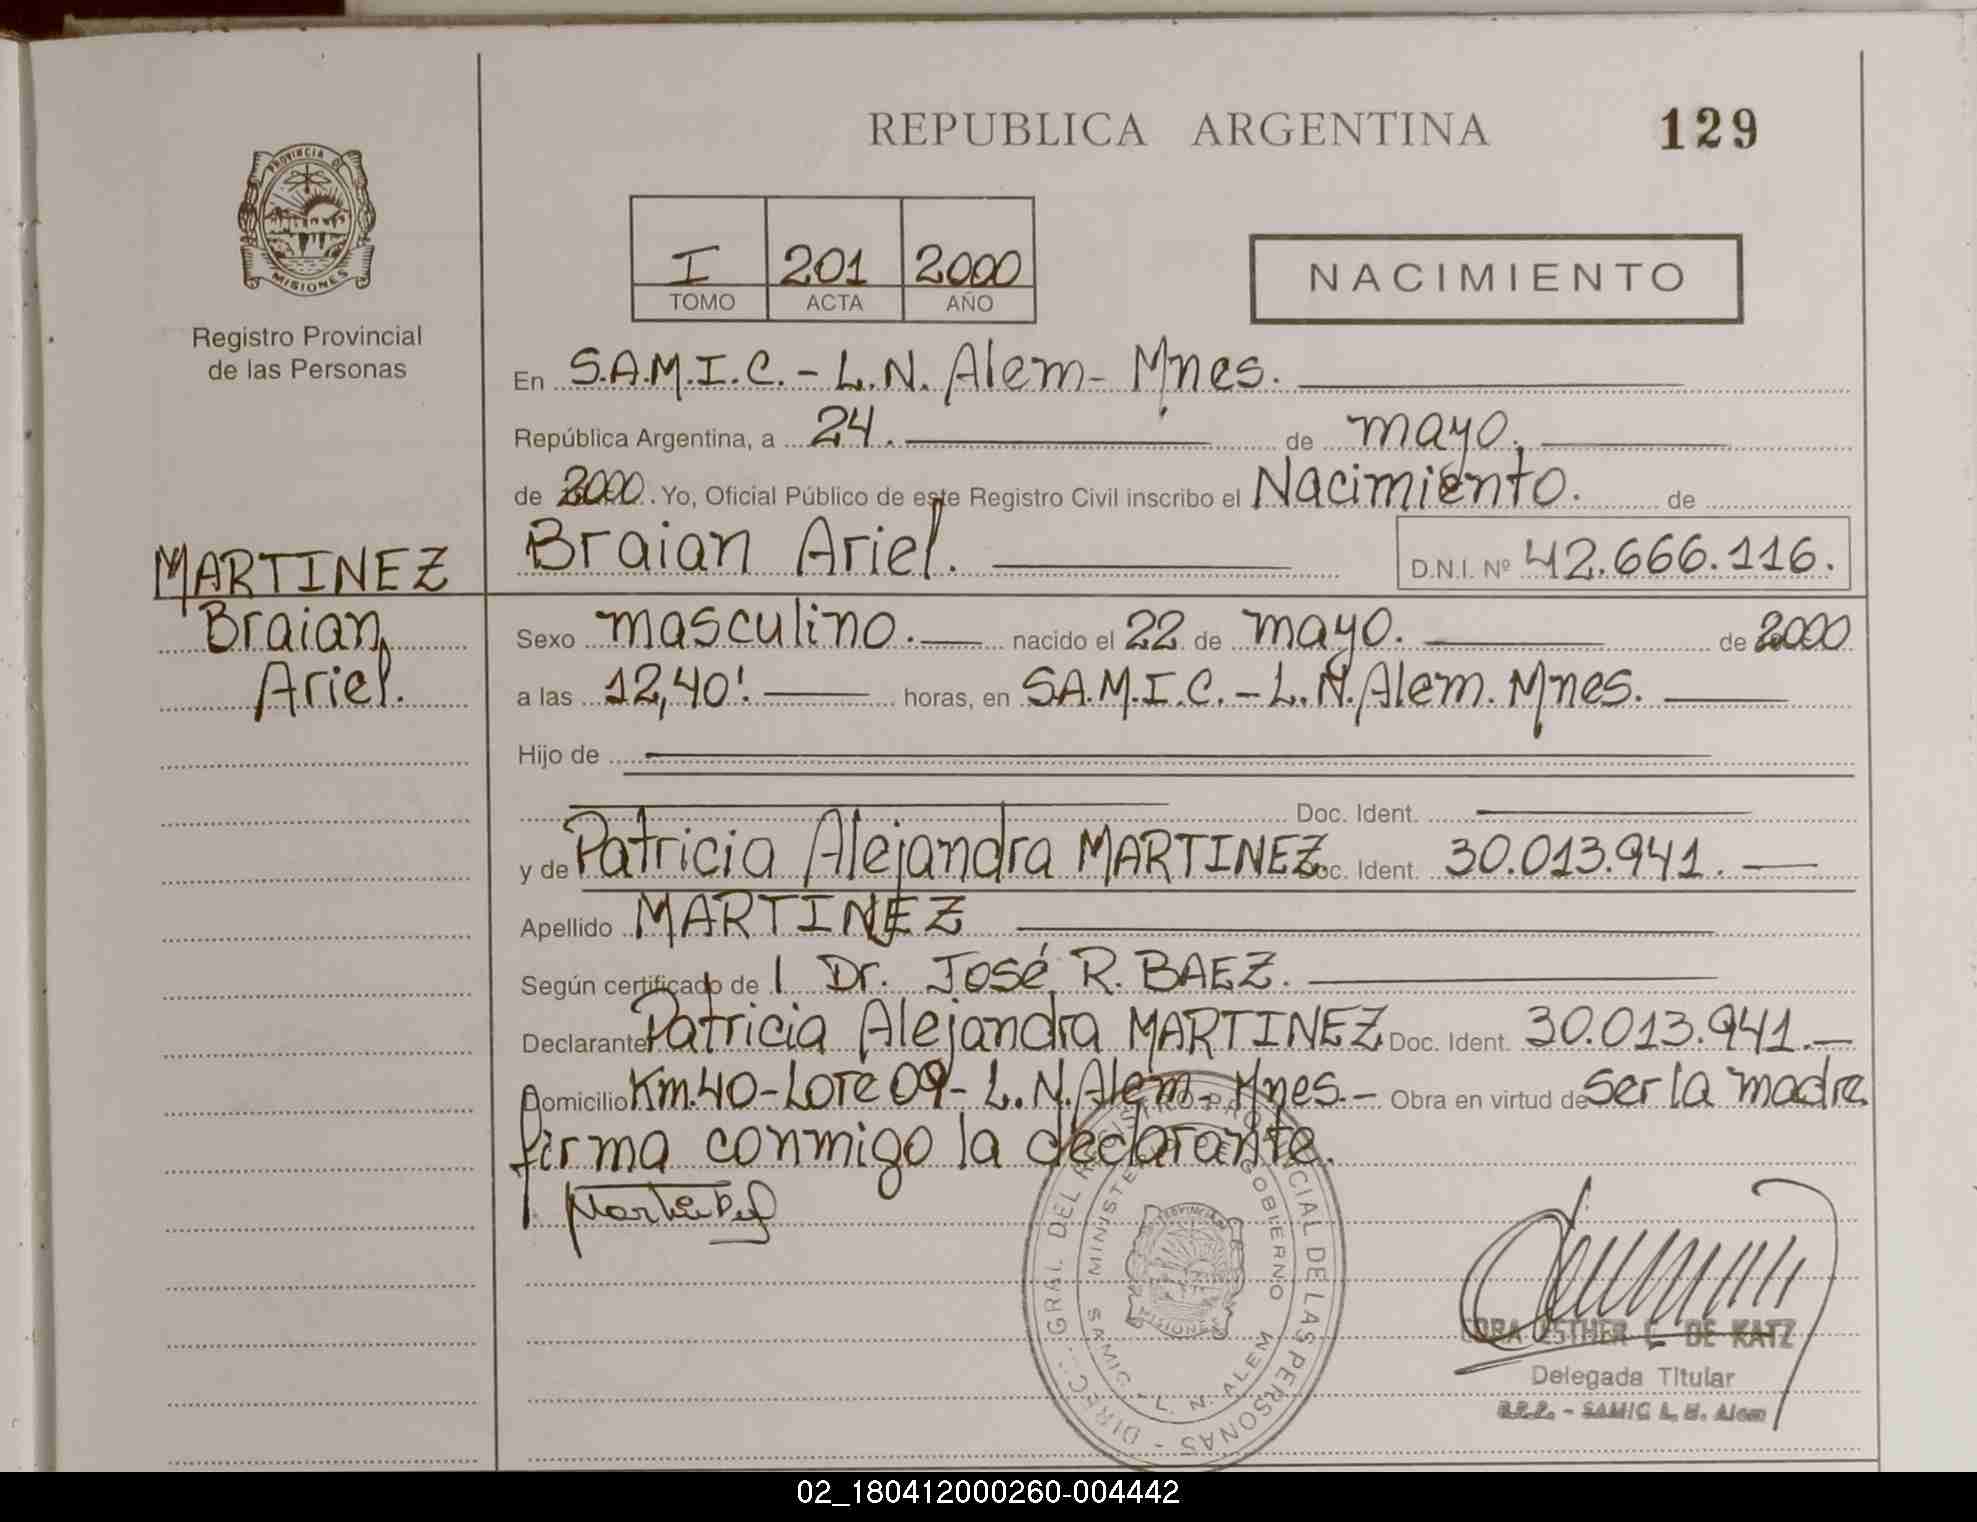 REPUBLICA ARGENTINA
129
PROVINCIA DE
MISIONES
Registro Provincial
de las Personas
I 201 2000
TOMO ACTA AÑO
NACIMIENTO
En S.A.M.I.C. - L.N. Alem - Mnes.
República Argentina, a 24. de mayo.
de 2000. Yo, Oficial Público de este Registro Civil inscribo el Nacimiento. de
Braian Ariel. D.N.I. Nº 42.666.116.
MARTINEZ
Braian
Ariel.
Sexo masculino. nacido el 22 de mayo. de 2000
a las 12,40'. horas, en S.A.M.I.C. - L.N. Alem. Mnes.
Hijo de
Doc. Ident.
y de Patricia Alejandra MARTINEZ Doc. Ident. 30.013.941.
Apellido MARTINEZ
Según certificado de l Dr. José R. BAEZ.
Declarante Patricia Alejandra MARTINEZ Doc. Ident. 30.013.941.
Domicilio Km. 40 - Lote 09 - L.N. Alem - Mnes. - Obra en virtud de ser la madre
firma conmigo la declarante.
DIREC. GRAL. DEL REGISTRO PROVINCIAL DE LAS PERSONAS
MINISTERIO GOBIERNO
SAMIC - L. N. ALEM
PROVINCIA
MISIONES
ESTHER C. DE KATZ
Delegada Titular
- SAMIC L. N. Alem
02_180412000260-004442